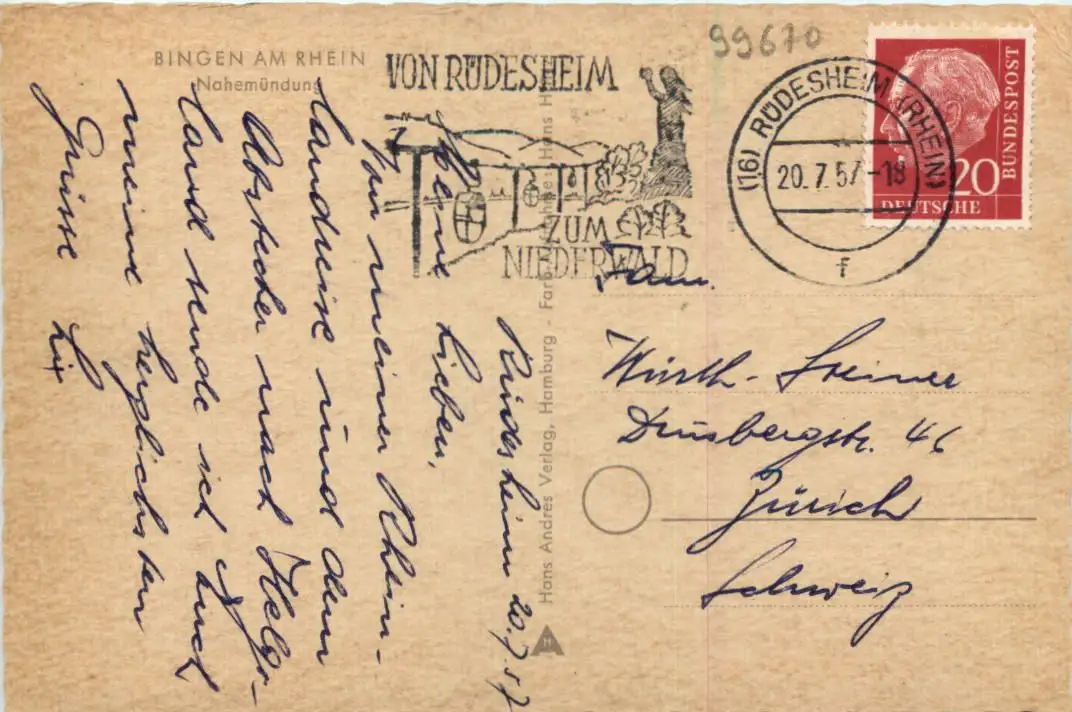 BINGEN AM RHEIN
Nahemündung
99670
VON RÜDESHEIM
ZUM
NIEDERWALD
(16) RÜDESHEIM (RHEIN)
20.7.57-18
f
20
DEUTSCHE
BUNDESPOST
Hans Andres Verlag, Hamburg - Farb
Hans H
H
Rüdesheim 20.7.57
Meine Lieben,
Von meiner Rhein-
landreise und dem
Abstecher nach Helgo-
land sende ich Euch
meine herzlichsten
Grüsse
Fam.
Wirth-
Drusbergstr. 46
Zürich
Schweiz